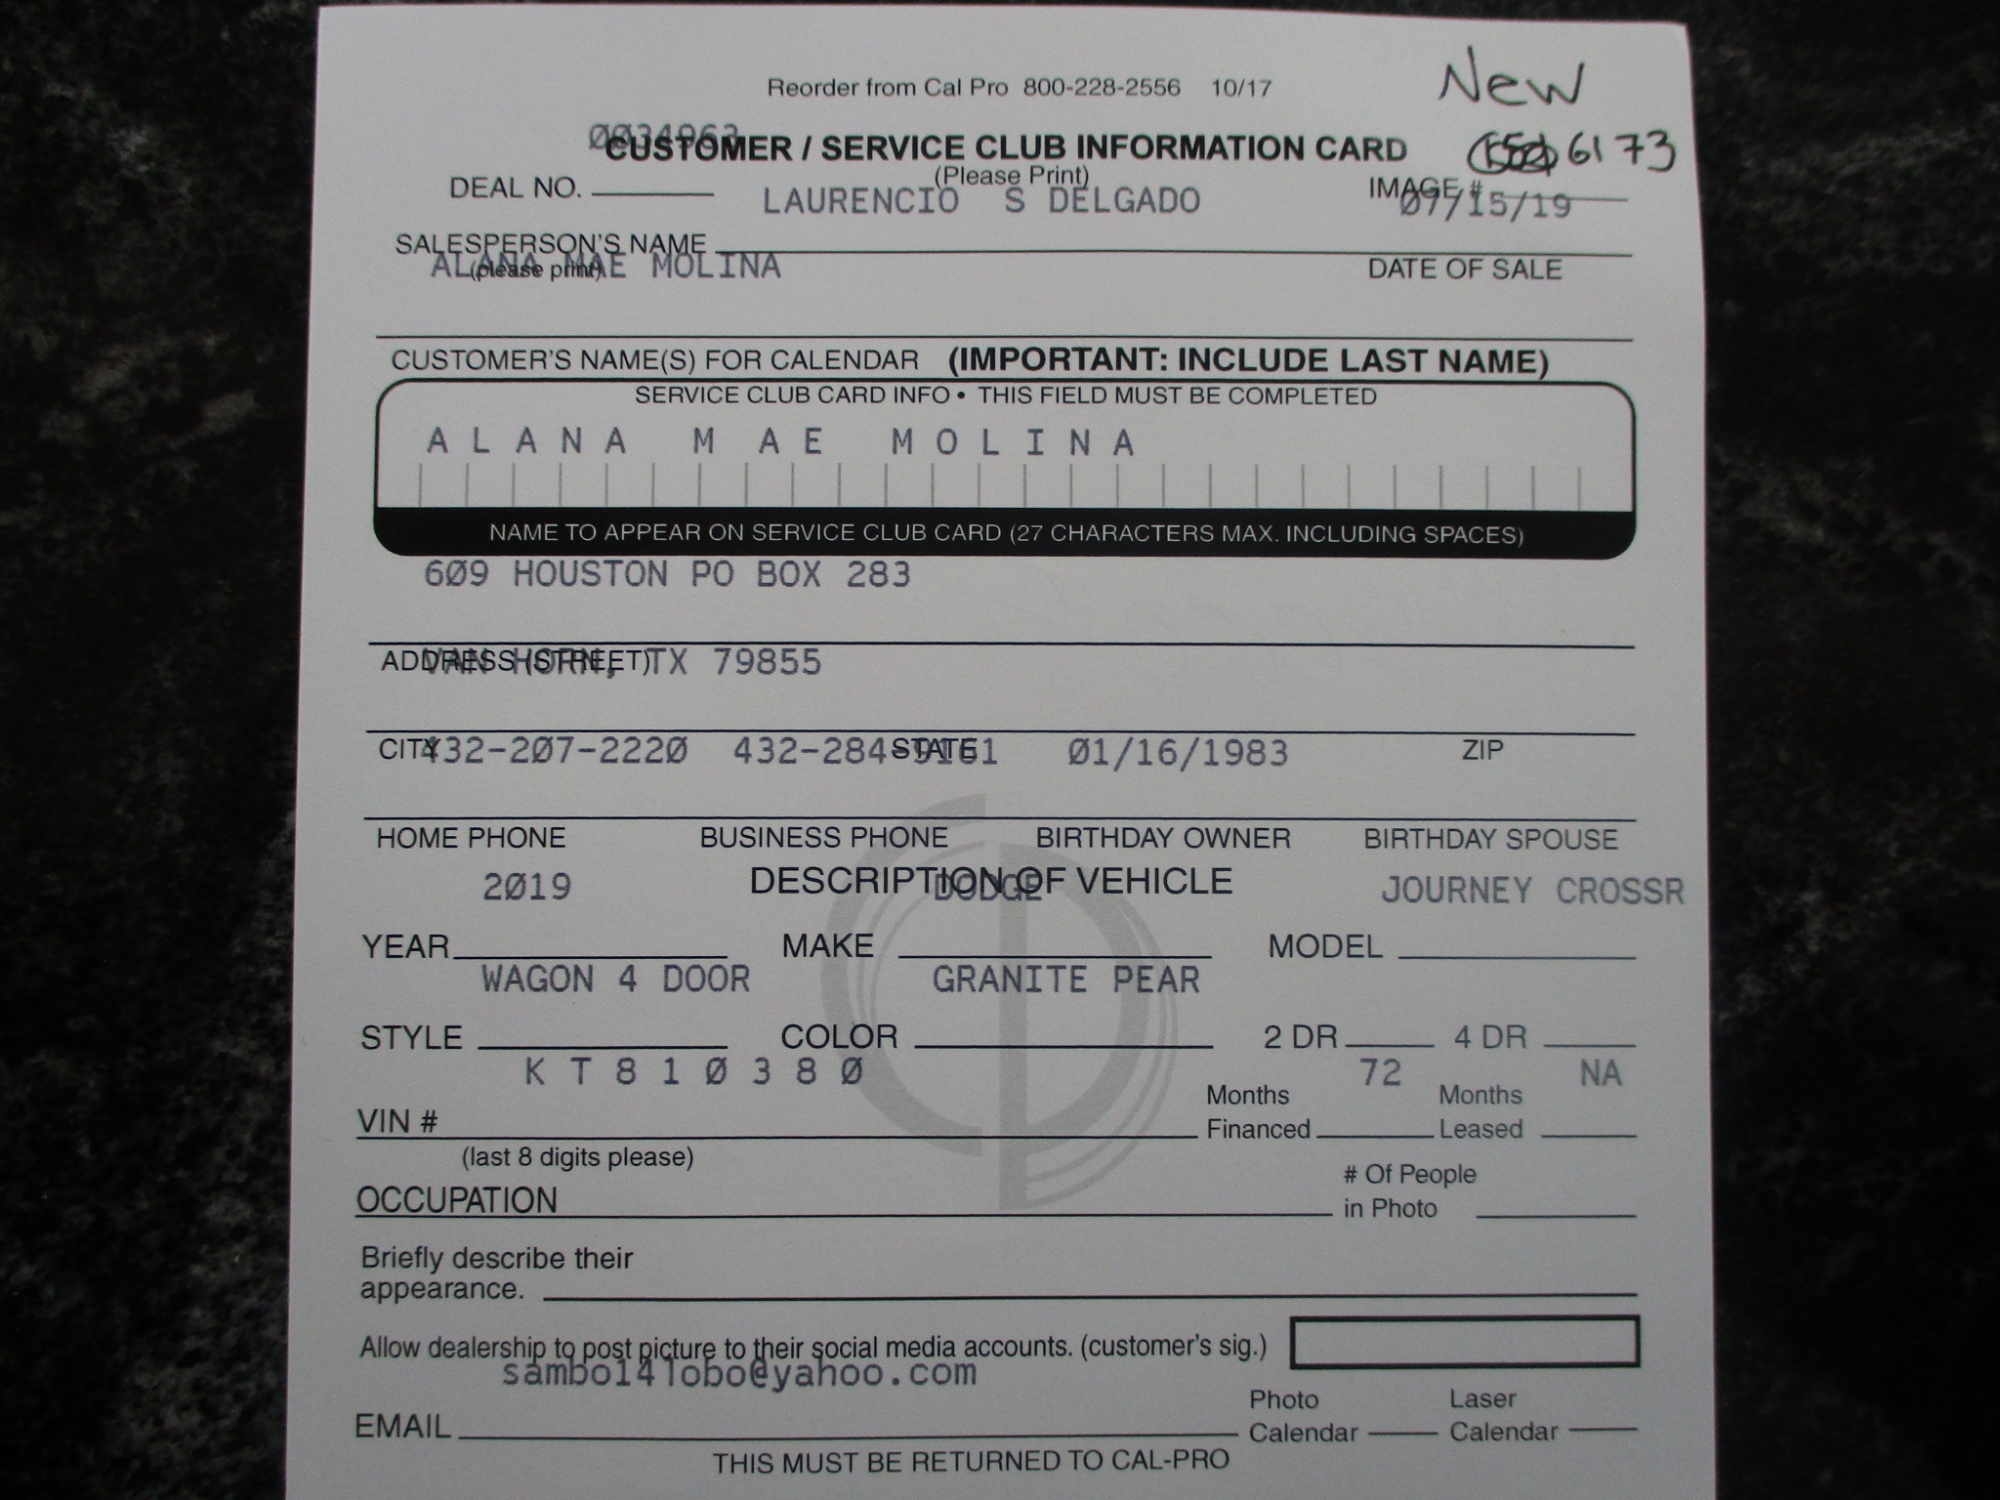 New
Reorder from Cal Pro 800-228-2556 10/17
0034963
CUSTOMER / SERVICE CLUB INFORMATION CARD
6173
(Please Print)
DEAL NO.
LAURENCIO S DELGADO
IMAGE #
07/15/19
SALESPERSON'S NAME
(please print)
ALANA MAE MOLINA
DATE OF SALE
CUSTOMER'S NAME(S) FOR CALENDAR (IMPORTANT: INCLUDE LAST NAME)
SERVICE CLUB CARD INFO • THIS FIELD MUST BE COMPLETED
ALANA MAE MOLINA
NAME TO APPEAR ON SERVICE CLUB CARD (27 CHARACTERS MAX. INCLUDING SPACES)
609 HOUSTON PO BOX 283
ADDRESS (STREET)
VAN HORN, TX 79855
CITY STATE ZIP
432-207-2220 432-284-9161 01/16/1983
HOME PHONE BUSINESS PHONE BIRTHDAY OWNER BIRTHDAY SPOUSE
DESCRIPTION OF VEHICLE
2019 DODGE JOURNEY CROSSR
YEAR MAKE MODEL
WAGON 4 DOOR GRANITE PEAR
STYLE COLOR 2 DR 4 DR
KT810380 72 NA
VIN # Months Financed Months Leased
(last 8 digits please)
OCCUPATION # Of People in Photo
Briefly describe their
appearance.
Allow dealership to post picture to their social media accounts. (customer's sig.)
sambo14lobo@yahoo.com
EMAIL Photo Calendar Laser Calendar
THIS MUST BE RETURNED TO CAL-PRO